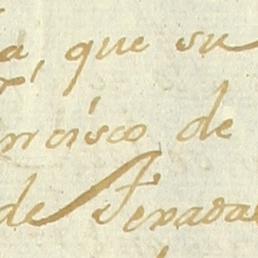 a, que su
ncisco de
de Texada